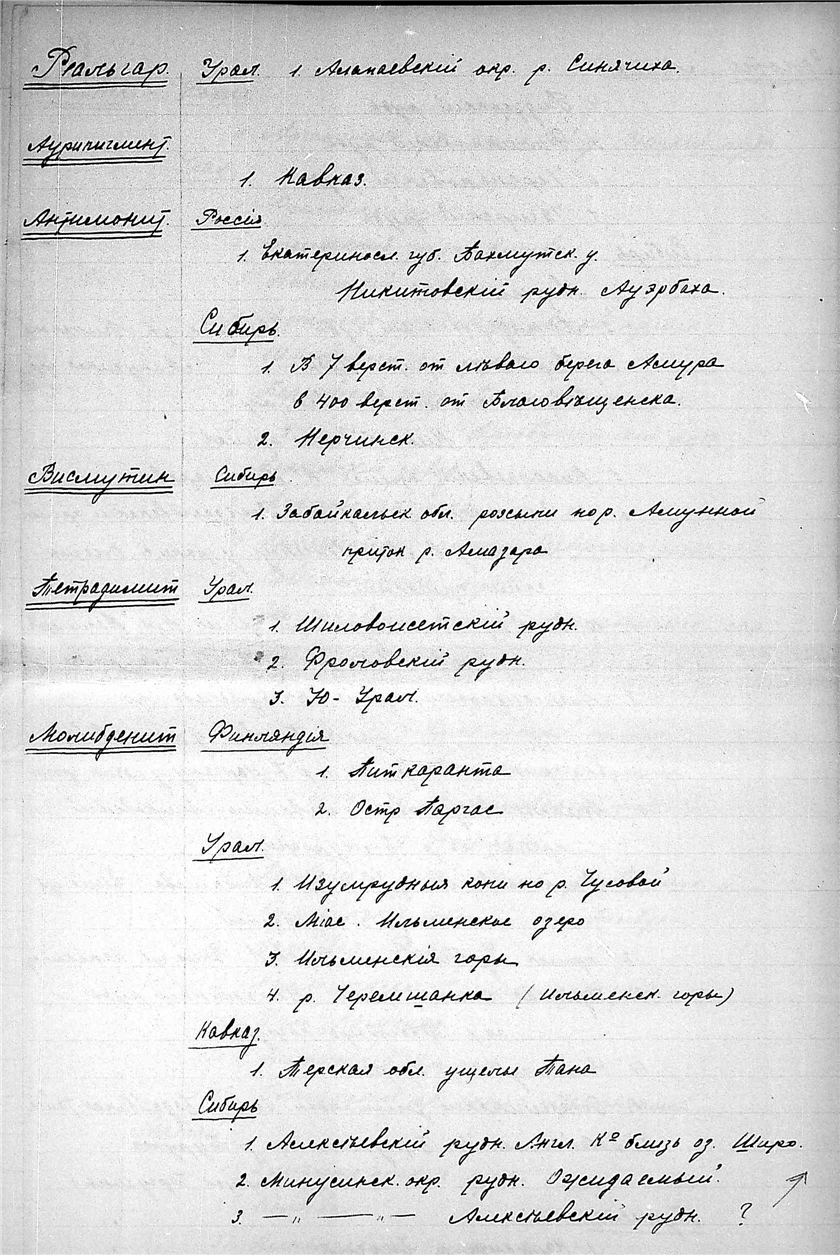 Реальгар. Урал. 1. Алапаевскій окр. р. Синячиха.
Аурипигмент.
1. Кавказ.
Антимонит. Россія
1. Екатериносл. губ. Бахмутск. у.
Никитовскій рудн. Ауэрбаха.
Сибирь.
1. В 7 верст. от лѣваго берега Амура
в 400 верст. от Благовѣщенска.
2. Нерчинск.
Висмутин Сибирь.
1. Забайкальск обл. розсыпи по р. Амунной
приток р. Амазара
Тетрадимит Урал.
1. Шиловоисетскій рудн.
2. Фроловскій рудн.
3. Ю- Урал.
Молибденит Финляндія
1. Питкаранта
2. Остр Паргас
Урал.
1. Изумрудныя копи по р. Чусовой
2. Міас. Ильменское озеро
3. Ильменскія горы
4. р. Черемшанка (Ильменск. горы)
Кавказ.
1. Терская обл. ущелье Тана
Сибирь
1. Алексѣевскій рудн. Англ. Ко близь оз. Широ.
2. Минусинск. окр. рудн. Ожидаемый.
3. — „ — — „ — Алексѣевскій рудн. ?